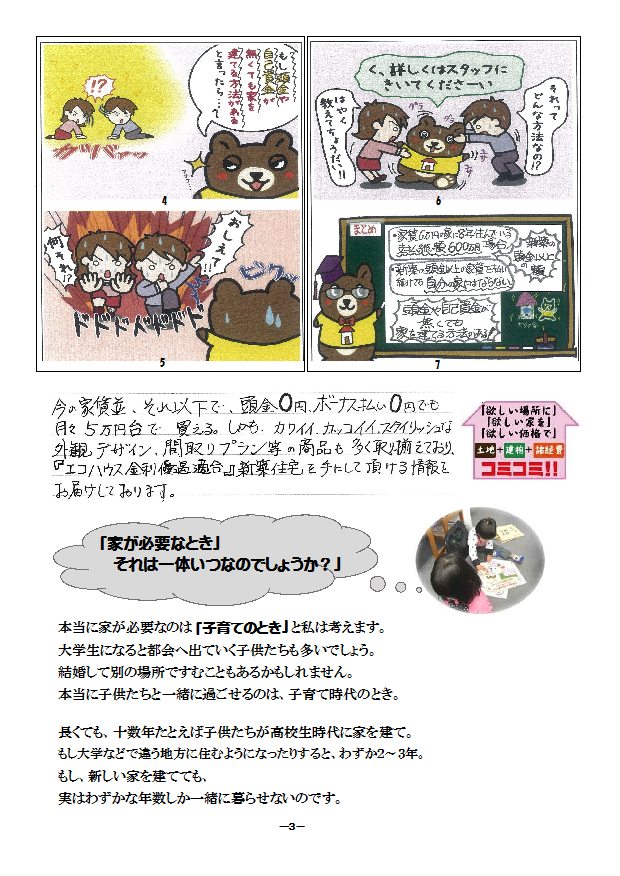 もし頭金や
自己資金が
無くても家を
建てる方法がある
と言ったら…?
!?
ガバァーッ
4
おしえて!!
何それ!?
ビクッ
ドドドドドドド
5
く、詳しくはスタッフに
きいてくださーい
それって
どんな方法なの!?
はやく
教えてちょうだい!!
グラ
グラ
6
まとめ
・家賃6万円の家に8年住んでいる
支払総額600万円の場合
新築の
頭金以上の
額
・新築の頭金以上の家賃を払い
続けても自分の家にはならない
頭金や自己資金が
無くても
家を建てる方法がある!
7
今の家賃並、それ以下で、頭金0円、ボーナス払い0円でも
月々5万円台で買える。しかも、カワイイ、カッコイイ、スタイリッシュな
外観デザイン、間取りプラン等の商品も多く取り揃えており、
『エコハウス金利優遇適合』新築住宅を手にして頂ける情報を
お届けしております。
「欲しい場所に」
「欲しい家を」
「欲しい価格で」
土地+建物+諸経費
コミコミ!!
「家が必要なとき」
それは一体いつなのでしょうか?」
本当に家が必要なのは「子育てのとき」と私は考えます。
大学生になると都会へ出ていく子供たちも多いでしょう。
結婚して別の場所ですむこともあるかもしれません。
本当に子供たちと一緒に過ごせるのは、子育て時代のとき。
長くても、十数年たとえば子供たちが高校生時代に家を建て。
もし大学などで違う地方に住むようになったりすると、わずか2~3年。
もし、新しい家を建てても、
実はわずかな年数しか一緒に暮らせないのです。
―3―